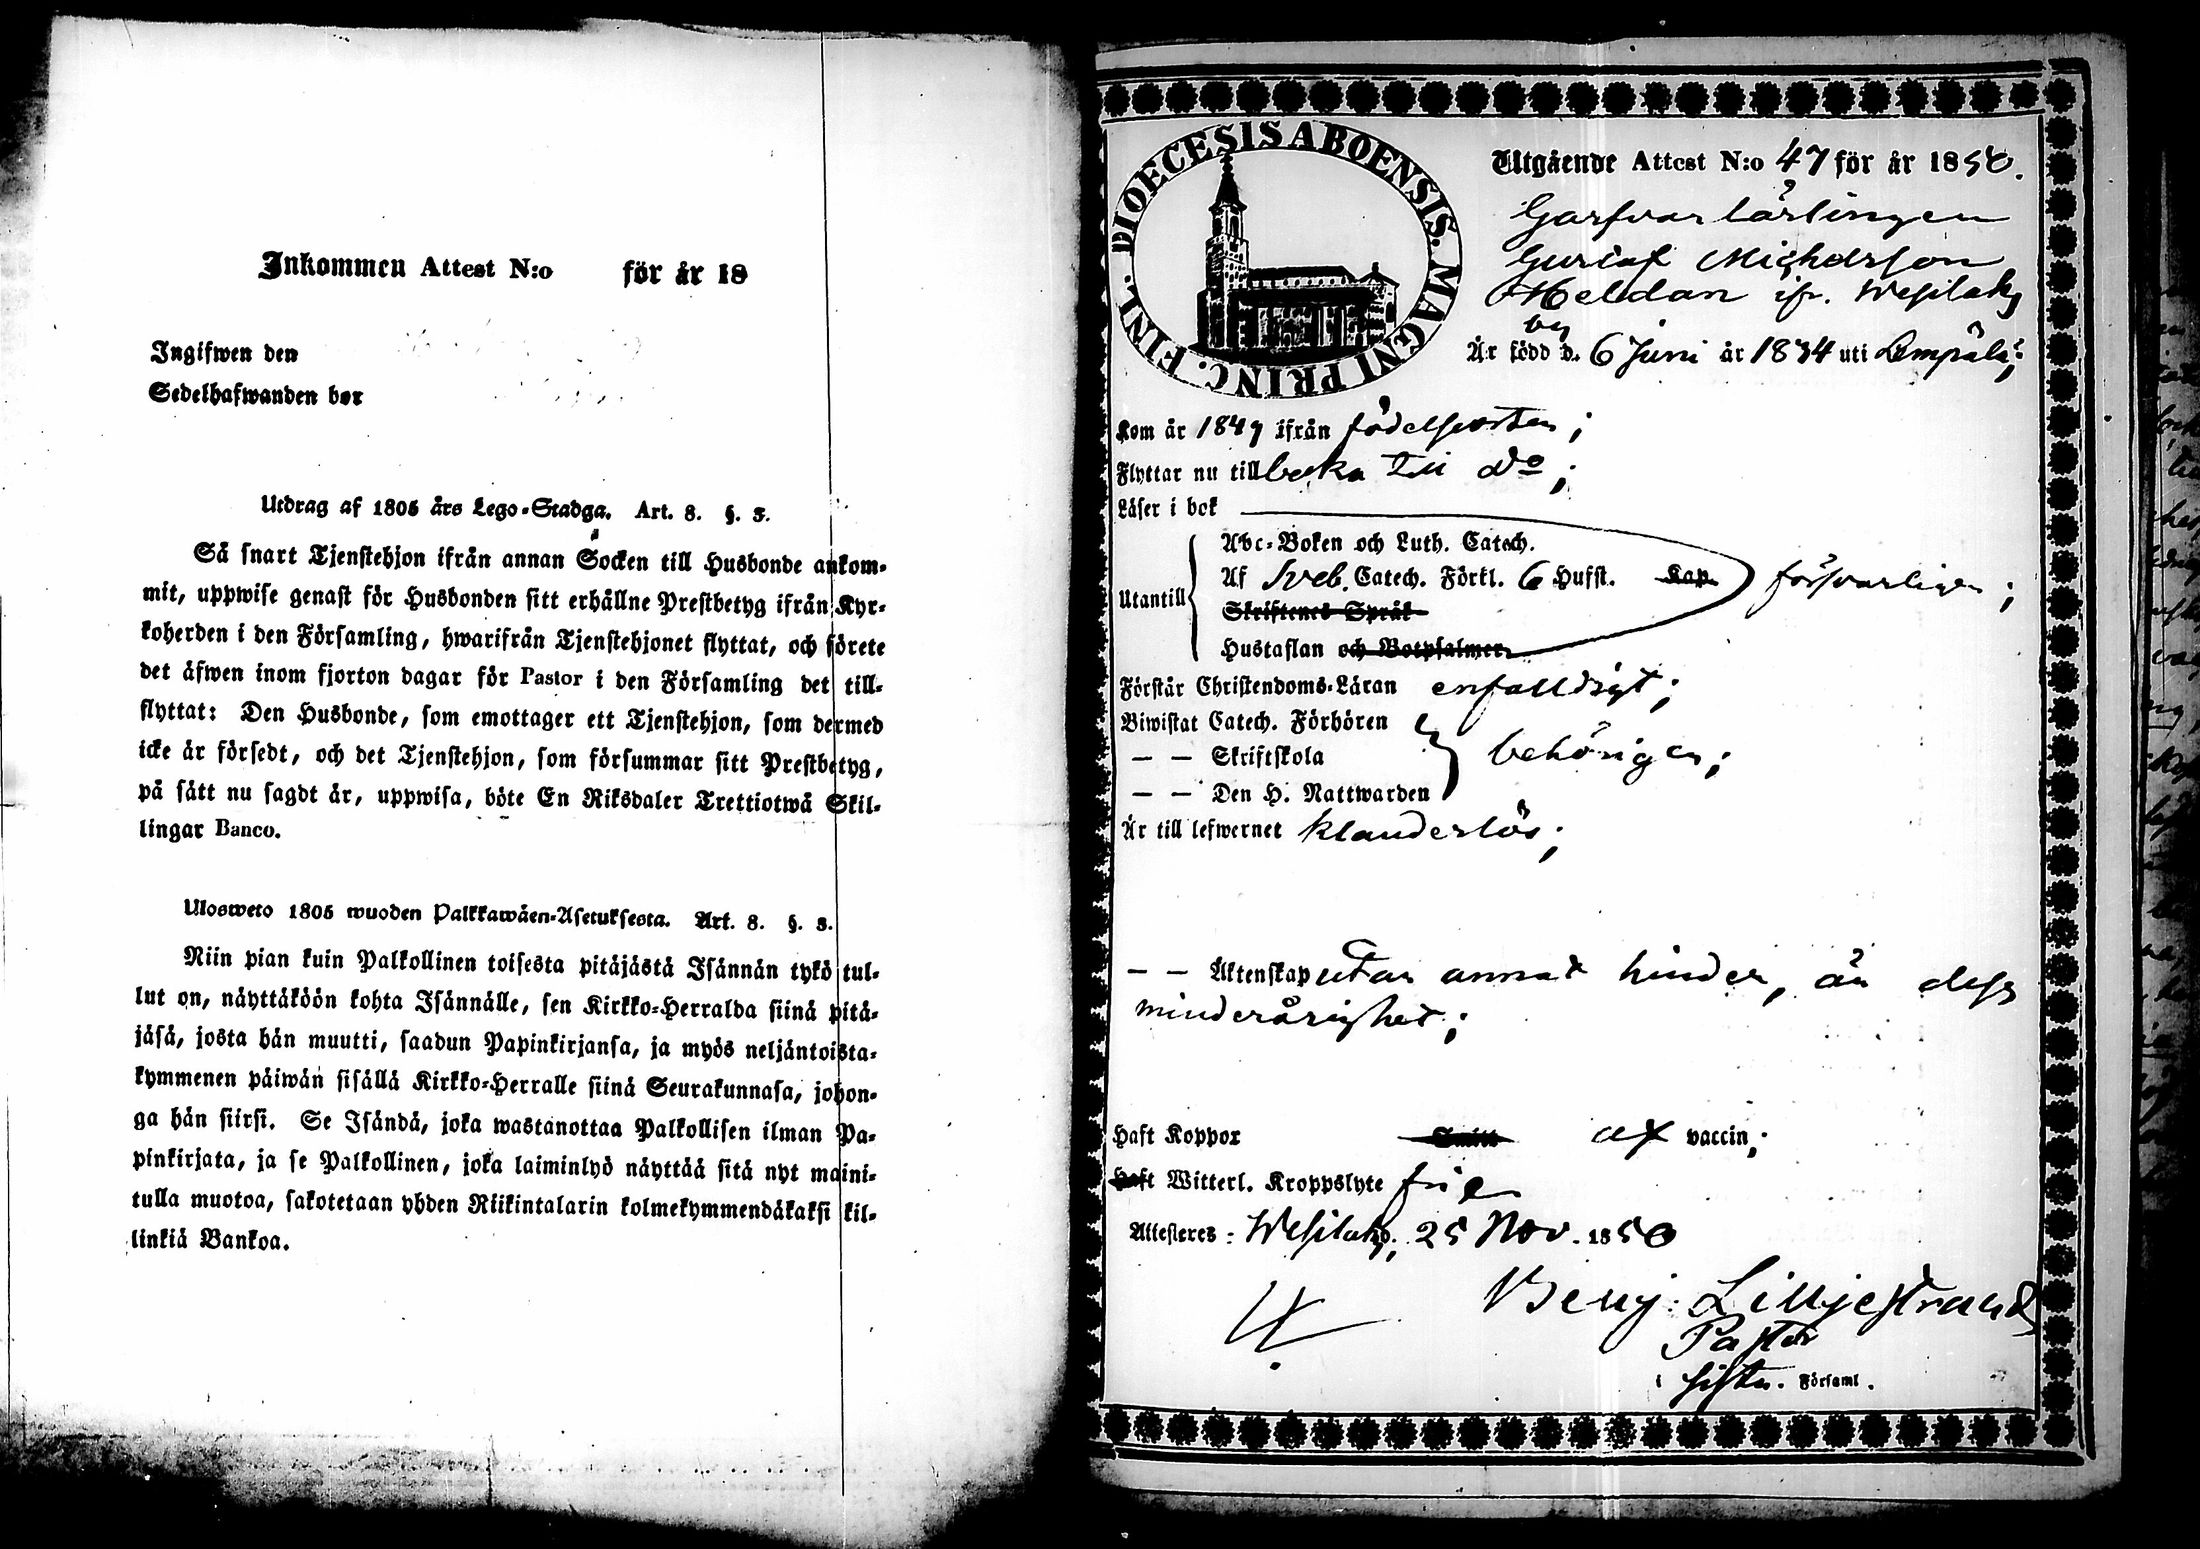 Inkommen Attest N:o för år 18
Ingifwen den
Sedelhafwanden bor
Utdrag af 1805 års Lego-Stadga. Art. 8. §. 3.
Så snart Tjenstehjon ifrån annan Socken till Husbonde ankom-
mit, uppwise genast för Husbonden sitt erhållne Prestbetyg ifrån Kyr-
koherden i den Församling, hwarifrån Tjenstehjonet flyttat, och förete
det äfwen inom fjorton dagar för Pastor i den Församling det till-
flyttat: Den Husbonde, som emottager ett Tjenstehjon, som dermed
icke är försedt, och det Tjenstehjon, som försummar sitt Prestbetyg,
på sätt nu sagdt är, uppwisa, böte En Riksdaler Trettiotwå Skil-
lingar Banco.
Ulosweto 1805 wuoden Palkkawäen-Asetuksesta. Art. 8. §. 3.
Niin pian kuin Palkollinen toisesta pitäjästä Isännän tykö tul-
lut on, näyttäköön kohta Isännälle, sen Kirkko-Herralda siinä pitä-
jäsä, josta hän muutti, saadun Papinkirjansa, ja myös neljäntoista-
kymmenen päiwän sisällä Kirkko-Herralle siinä Seurakunnasa, johon-
ga hän siirsi. Se Isändä, joka wastanottaa Palkollisen ilman Pa-
pinkirjata, ja se Palkollinen, joka laiminlyö näyttää sitä nyt maini-
tulla muotoa, sakotetaan yhden Riikintalarin kolmekymmendäkaksi kil-
linkiä Bankoa.
DIOECESIS ABOENSIS. MAGNI PRINC. FINL.
Utgående Attest N:o 47 för år 1850.
Garfvarlärlingen
Gustaf Michelsson
Heldan ifr. Wesilaks
by
Är född d. 6 Juni år 1834 uti Lempälä;
Kom år 1849 ifrån födelseorten;
Flyttar nu tillbaka till do;
Läser i bok
Abc-Boken och Luth. Catech.
Utantill Af Sveb. Catech. Förkl. 6 Hufst. Kap. försvarligen;
Skriftenes Språk
Hustaflan och Botpsalmer
Förstår Christendoms-Läran enfaldigt;
Biwistat Catech. Förhören
— — Skriftskola behörigen;
— — Den H. Nattwarden
Är till lefwernet klanderlös;
— — Äktenskap utan annat hinder, än dess
minderårighet;
Haft Koppor Smitt af vaccin;
Haft Witterl. Kroppslyte fri
Attesteres: Wesilaks, 25 Nov. 1850
Benj: Lilljestrand
Pastor
i sistn. Församl.